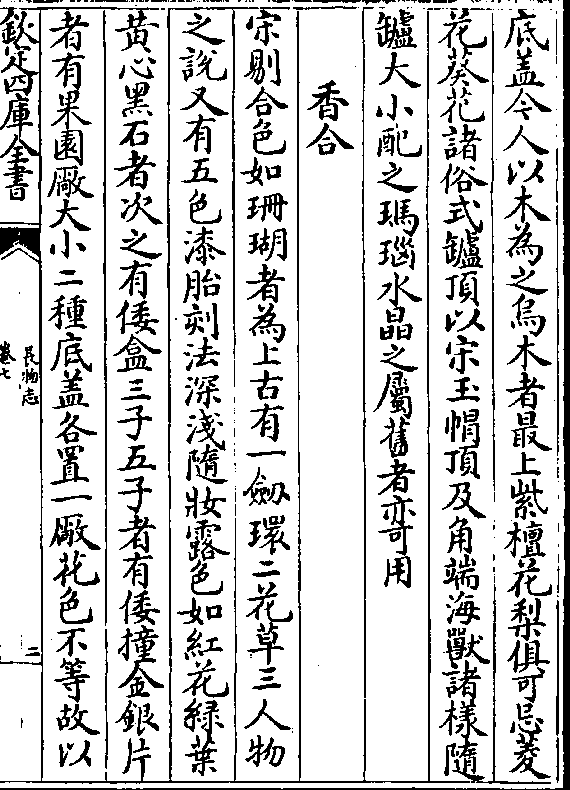 底盖今人以木為之烏木者最上紫檀花梨俱可忌菱
花葵花諸俗式罏頂以宋玉帽頂及角端海獸諸様隨
罏大小配之瑪瑙水晶之屬舊者亦可用
香合
宋剔合色如珊瑚者為上古有一劔環二花草三人物
之說又有五色漆胎刻法深淺隨妝露色如紅花緑葉
黄心黑石者次之有倭盒三子五子者有倭撞金銀片
者有果園厰大小二種底盖各置一厰花色不等故以
欽定四庫全書
長物志
卷七
二